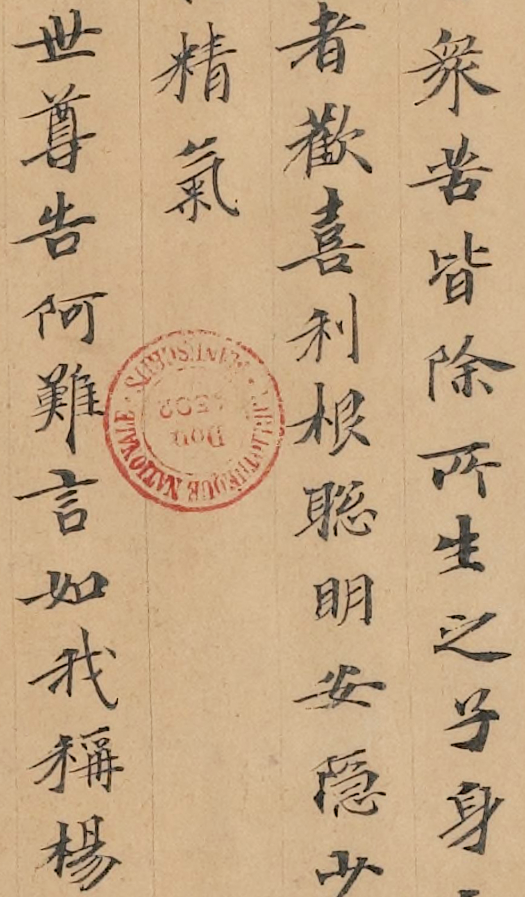 衆苦皆除所生之子身
者歡喜利根聡明安隱少
精氣
世尊告阿難言如我稱楊
BIBLIOTHEQUE NATIONALE · MANUSCRITS ·
Dou
4502